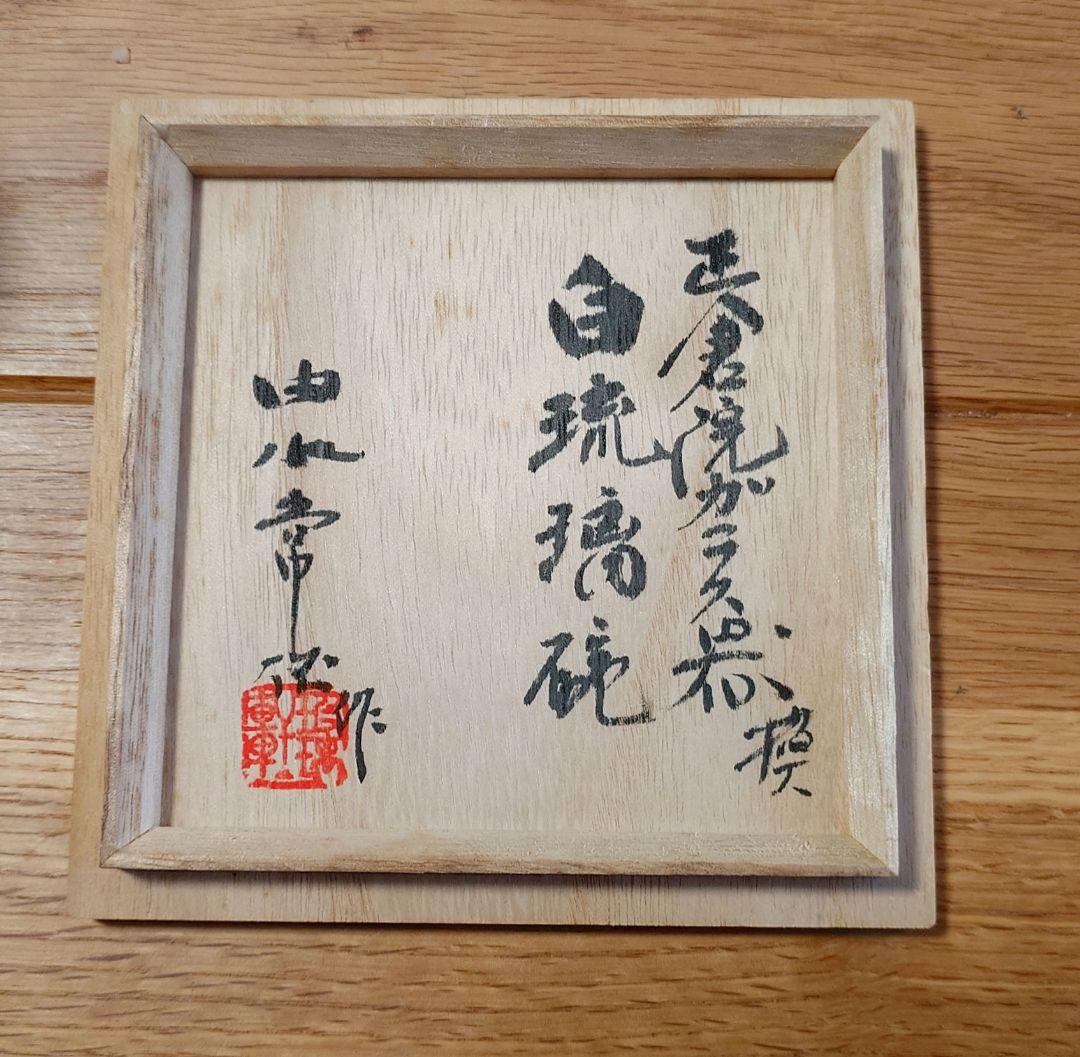 正倉院ガラス器 模
白琉璃碗
由水常雄 作